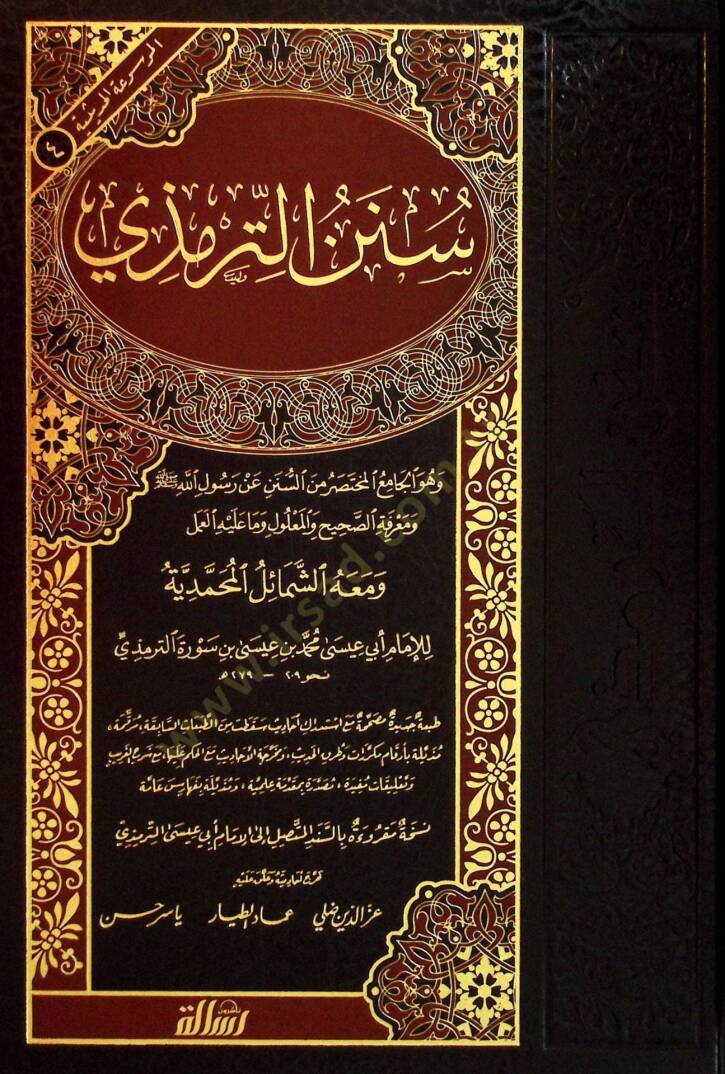 الموسوعة الحديثية
٤
سُنَنُ التِّرمِذي
وَهُوَ الجَامِعُ المُختَصَرُ مِنَ السُّنَنِ عَنْ رَسُولِ اللهِ ﷺ
وَمَعْرِفَةِ الصَّحِيحِ وَالمَعْلُولِ وَمَا عَلَيْهِ العَمَل
وَمَعَهُ الشَّمَائِلُ المُحَمَّدِيَّةُ
لِلإِمَامِ أَبِي عِيسَىٰ مُحَمَّد بْنِ عِيسَىٰ بْنِ سَوْرَة التِّرمِذِيِّ
نحو ٢٠٩ - ٢٧٩هـ
طبعة جديدة مصححة مع استدراك أحاديث سقطت من الطبعات السابقة، مرقمة،
مذيلة بأرقام مكررات وطرق الحديث، ومخرجة الأحاديث مع الحكم عليها، مع شرح الغريب
وتعليقات مفيدة، مصدرة بمقدمة علمية، ومذيلة بفهارس عامة
نسخة مقروءة بالسند المتصل إلى الإمام أبي عيسى الترمذي
خرج أحاديثه وعلق عليه
عز الدين ضلي عماد الطيار ياسر حسن
رسالة ناشرون
www.irsad.com